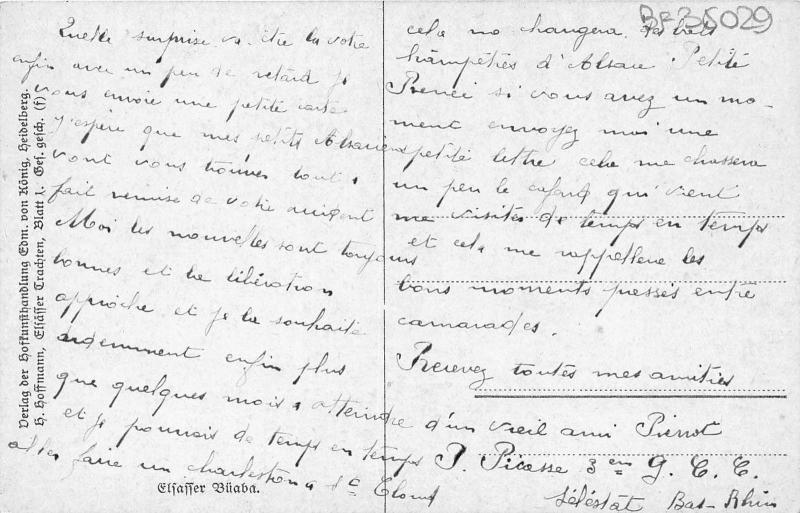 BF35029
Quelle surprise va être la votre
enfin avec un peu de retard je
vous envoie une petite carte
J'espère que mes petits Alsaciens
vont vous trouver tout à
fait remise de votre accident
Moi les nouvelles sont toujours
bonnes et la libération
approche et je la souhaite
ardemment enfin plus
que quelques mois a atteindre
et je pourrais de temps en temps
aller faire un charleston a St Cloud
cela me changera des bals
champêtres d'Alsace. Petite
Renée si vous avez un mo-
ment envoyez moi une
petite lettre cela me chassera
un peu le cafard qui vient
me visiter de temps en temps
et cela me rappellera les
bons moments passés entre
camarades.
Recevez toutes mes amitiés
d'un vieil ami Pierrot
P. Picasse 3em G. C. C.
Séléstat Bas-Rhin
Verlag der Hofkunsthandlung Edm. von König, Heidelberg.
H. Hoffmann, Elsässer Trachten, Blatt 1. Ges. gesch. (f)
Elsasser Büaba.